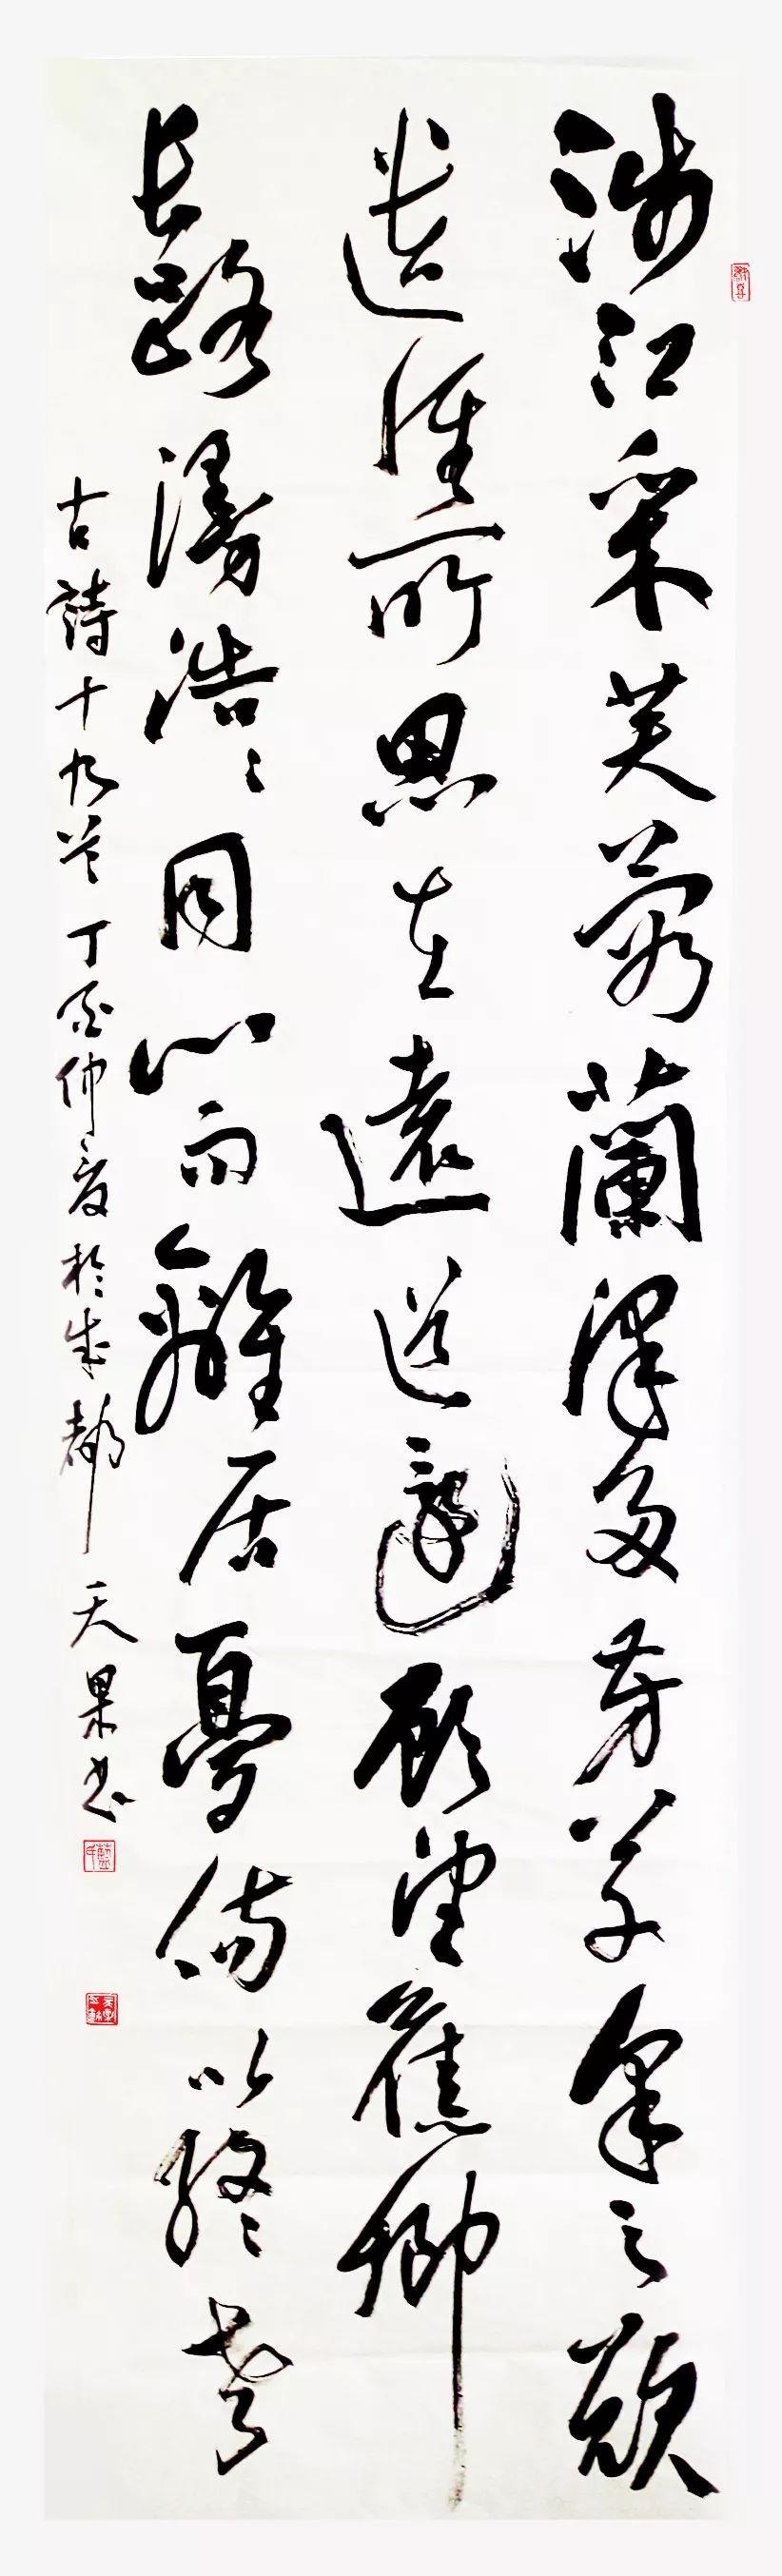 涉江采芙蓉蘭澤多芳草采之欲
遺誰所思在遠道還顧望舊鄉
長路漫浩〻同心而離居憂傷以終老
古詩十九首丁酉仲夏於成都天果书